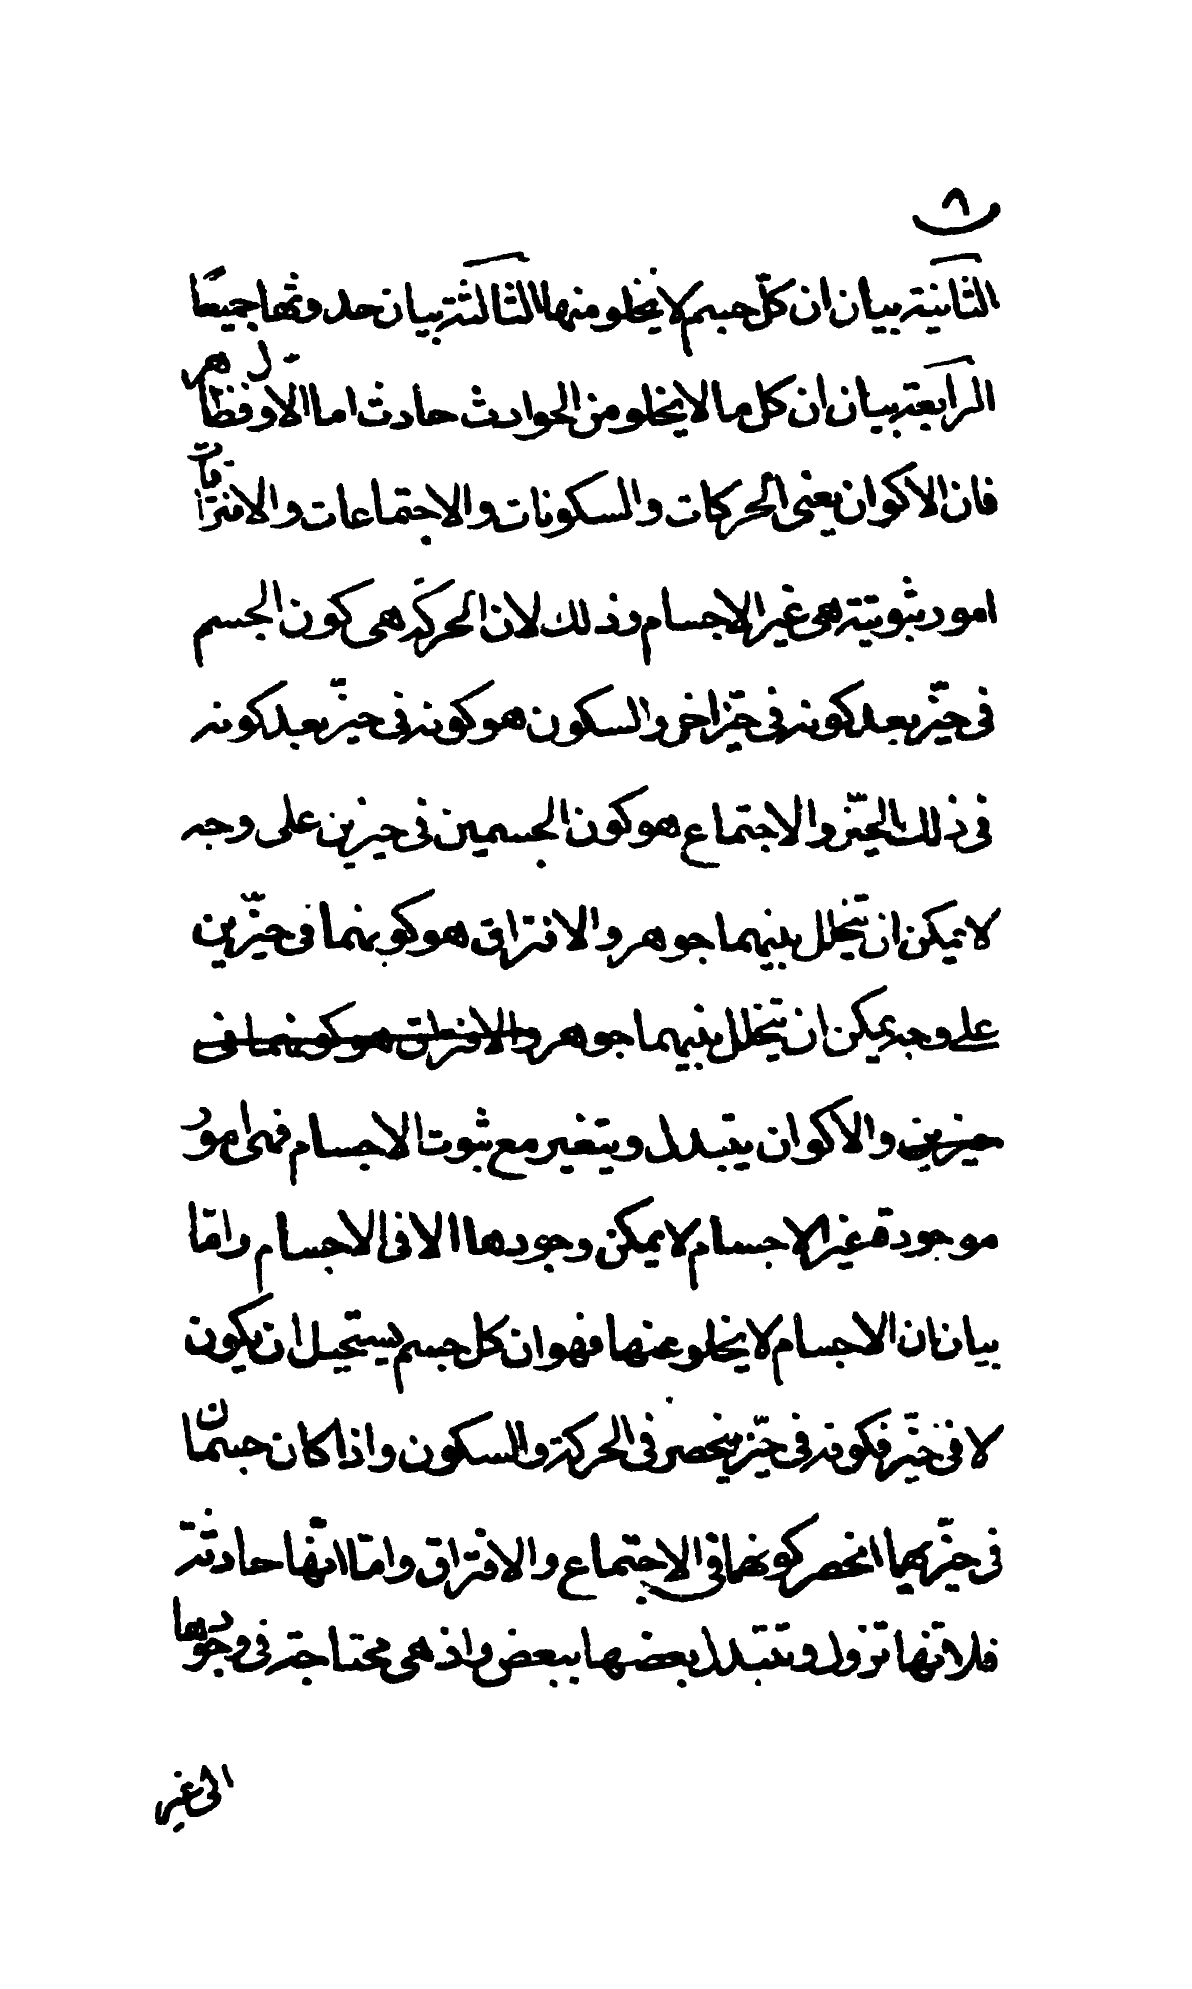 ٨
الثانية بيان ان كلّ جسم لا يخلو منها الثالثة بيان حدوثها جميعًا
الرابعة بيان ان كل ما لا يخلو من الحوادث حادث اما الاول فظاهر
فان الاكوان يعنى الحركات والسكونات والاجتماعات والافتراقات
امور ثبوتية هى غير الاجسام وذلك لان الحركة هى كون الجسم
فى حيّز بعد كونه فى حيّز اخر والسكون هو كونه فى حيّز بعد كونه
فى ذلك الحيّز والاجتماع هو كون الجسمين فى حيزين على وجه
لا يمكن ان يتخلل بينهما جوهر والافتراق هو كونهما فى حيّزين
على وجه يمكن ان يتخلل بينهما جوهر والافتراق هو كونهما فى
حيزين والاكوان يتبدل ويتغير مع ثبوت الاجسام فهى امور
موجودة غير الاجسام لا يمكن وجودها الا فى الاجسام وامّا
بيان ان الاجسام لا يخلو عنها فهو ان كل جسم يستحيل ان يكون
لا فى حيّز فكونه فى حيّز ينحصر فى الحركة والسكون واذا كان جسمان
فى حيّزيهما انحصر كونهما فى الاجتماع والافتراق وامّا انّها حادثة
فلانّها تزول وتتبدل بعضها ببعض واذ هى محتاجة فى وجودها
الى غير